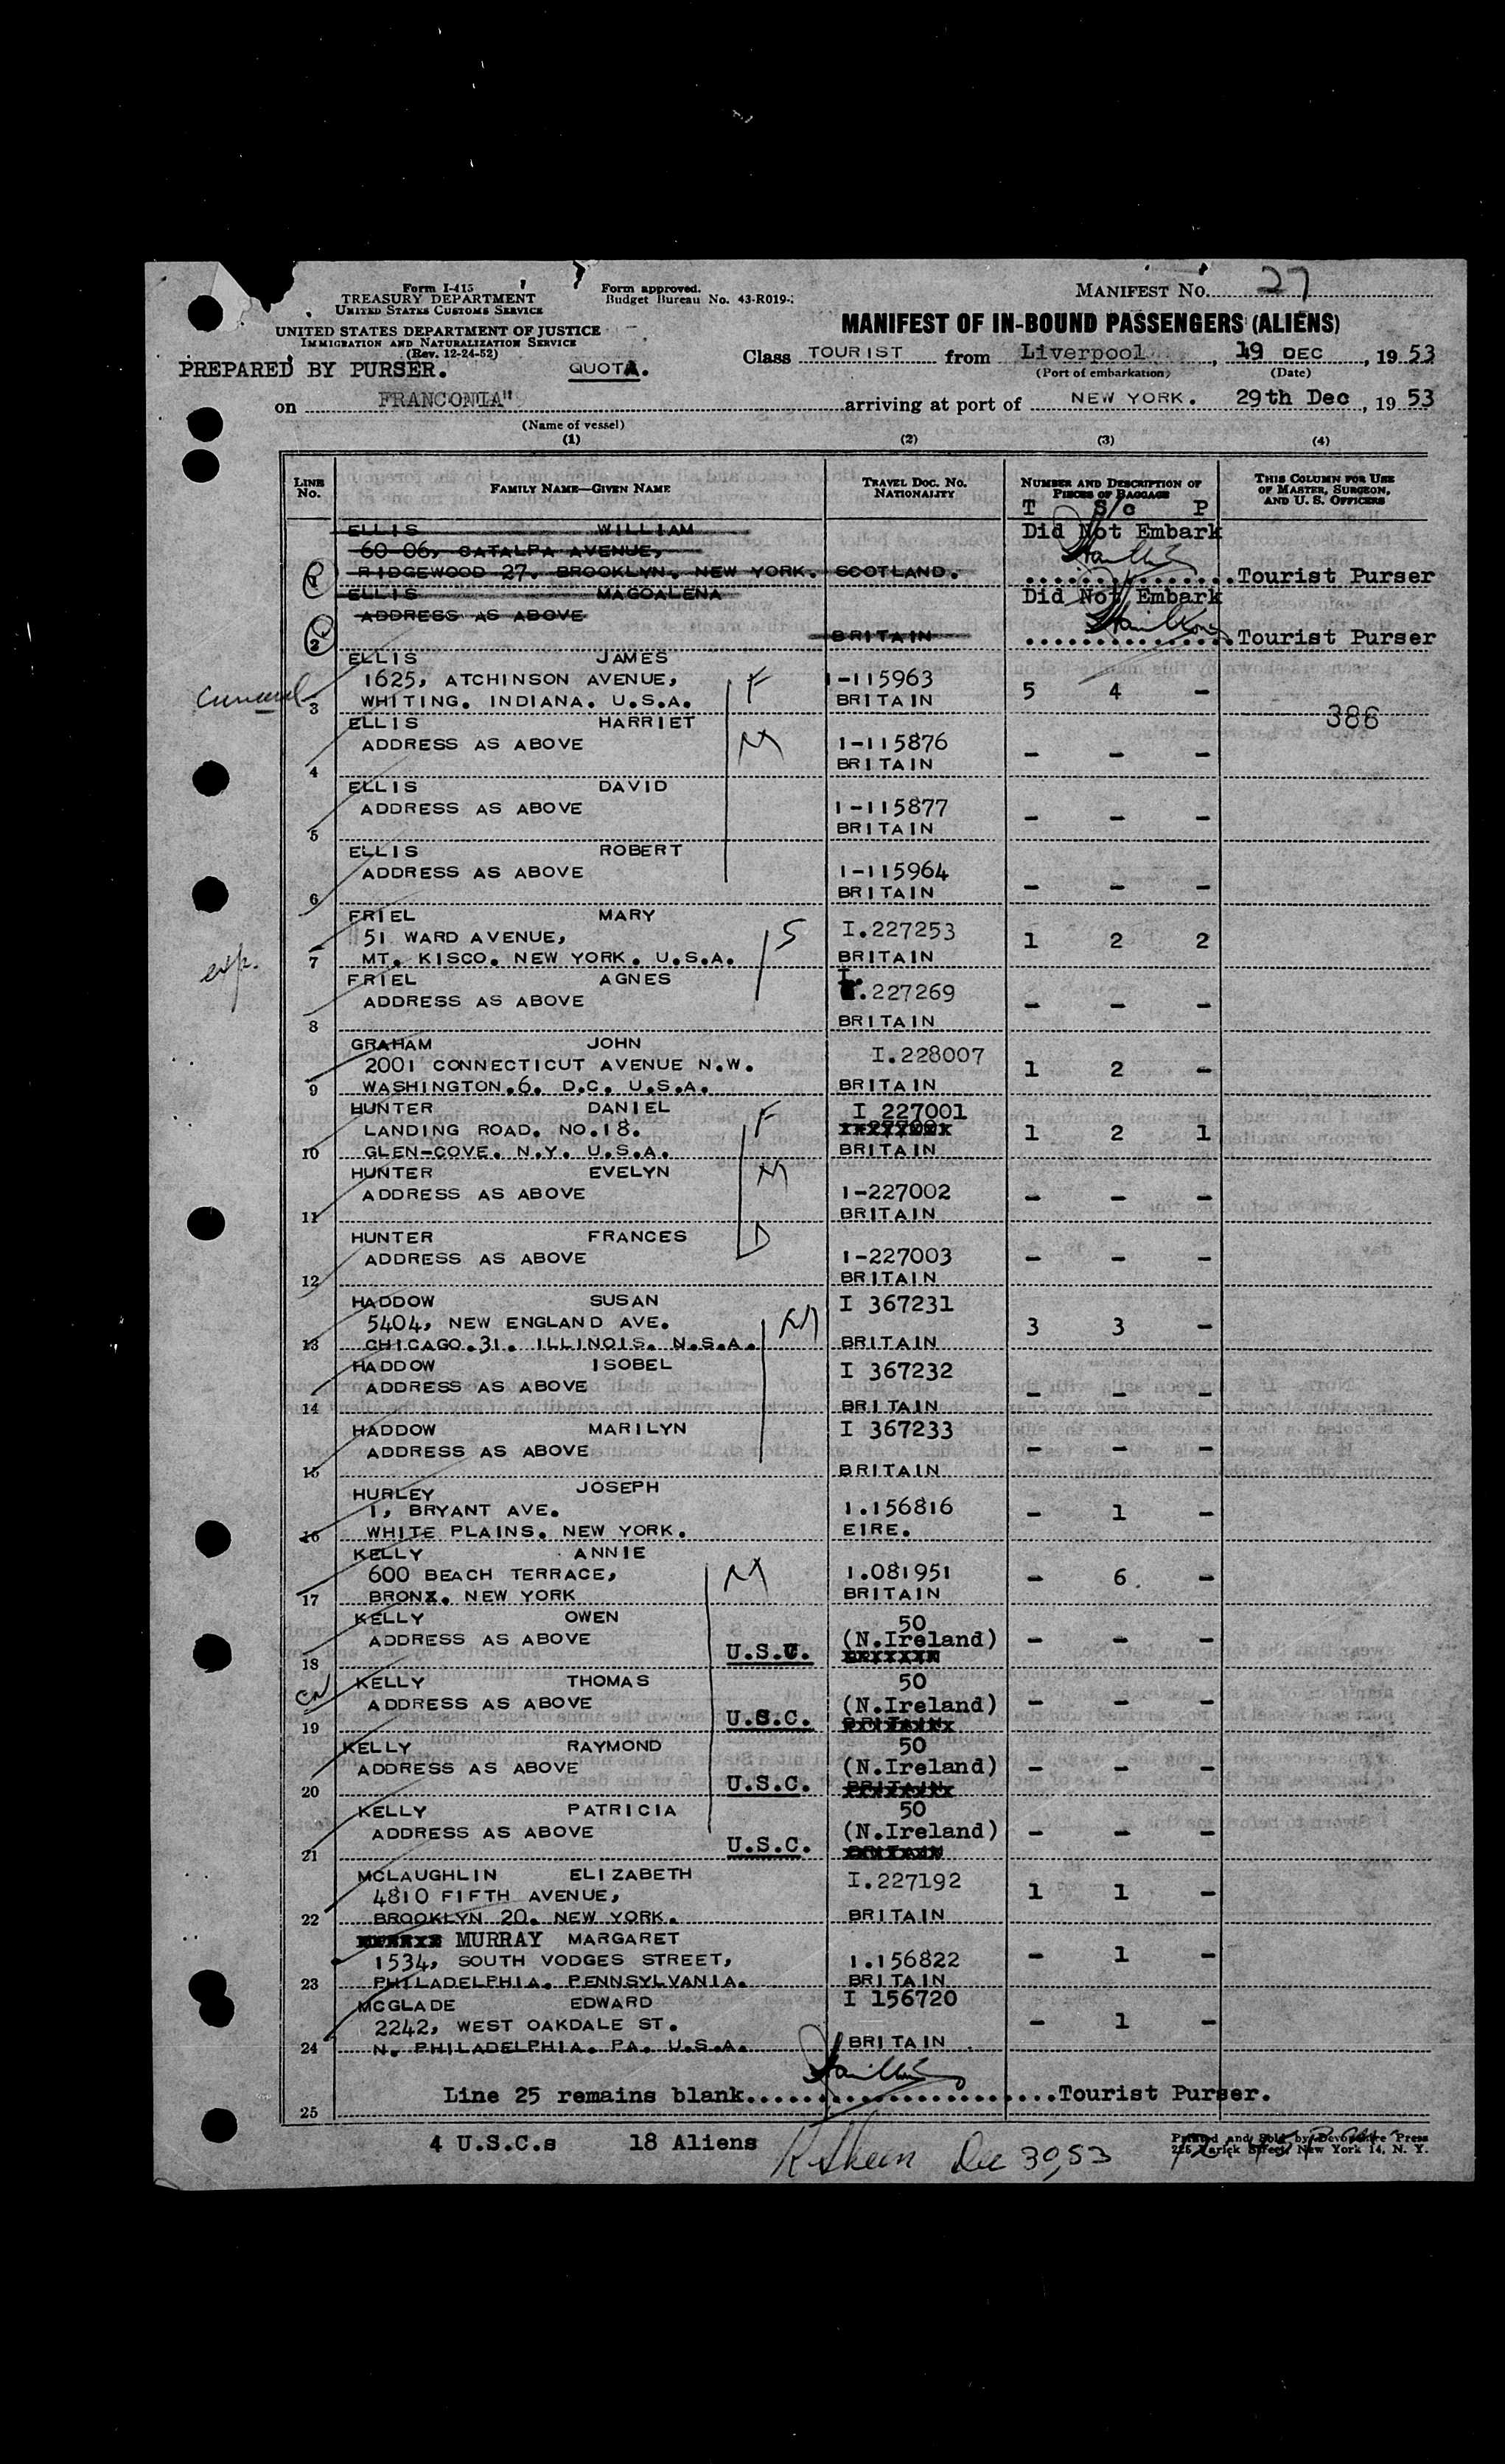 Form I-415
TREASURY DEPARTMENT
UNITED STATES CUSTOMS SERVICE
UNITED STATES DEPARTMENT OF JUSTICE
IMMIGRATION AND NATURALIZATION SERVICE
(Rev. 12-24-52)
PREPARED BY PURSER.
QUOTA.
Form approved.
Budget Bureau No. 43-R019-
MANIFEST NO. 27
MANIFEST OF IN-BOUND PASSENGERS (ALIENS)
Class TOURIST from Liverpool, 19 DEC, 19 53
(Port of embarkation) (Date)
on FRANCONIA" arriving at port of NEW YORK. 29th Dec, 19 53
(Name of vessel)
(1) (2) (3) (4)
LINE No. FAMILY NAME—GIVEN NAME TRAVEL DOC. NO. NATIONALITY NUMBER AND DESCRIPTION OF PIECES OF BAGGAGE THIS COLUMN FOR USE OF MASTER, SURGEON, AND U. S. OFFICERS
T S/c P
ELLIS WILLIAM Did Not Embark
60-06, CATALPA AVENUE,
1 RIDGEWOOD 27. BROOKLYN. NEW YORK. SCOTLAND. Tourist Purser
ELLIS MAGDALENA Did Not Embark
ADDRESS AS ABOVE
2 BRITAIN Tourist Purser
ELLIS JAMES
1625, ATCHINSON AVENUE, F 1-115963
3 WHITING. INDIANA. U.S.A. BRITAIN 5 4 -
386
ELLIS HARRIET
ADDRESS AS ABOVE M 1-115876
4 BRITAIN - - -
ELLIS DAVID
ADDRESS AS ABOVE 1-115877
5 BRITAIN - - -
ELLIS ROBERT
ADDRESS AS ABOVE 1-115964
6 BRITAIN - - -
FRIEL MARY
51 WARD AVENUE, S I.227253 1 2 2
7 MT. KISCO. NEW YORK. U.S.A. BRITAIN
exp.
FRIEL AGNES
ADDRESS AS ABOVE I.227269 - - -
8 BRITAIN
GRAHAM JOHN
2001 CONNECTICUT AVENUE N.W. I.228007 1 2 -
9 WASHINGTON.6. D.C. U.S.A. BRITAIN
HUNTER DANIEL F I 227001
LANDING ROAD. NO.18. 1 2 1
10 GLEN-COVE. N.Y. U.S.A. BRITAIN
HUNTER EVELYN M
ADDRESS AS ABOVE 1-227002 - - -
11 BRITAIN
HUNTER FRANCES D
ADDRESS AS ABOVE 1-227003 - - -
12 BRITAIN
HADDOW SUSAN I 367231
5404, NEW ENGLAND AVE. M 3 3 -
13 CHICAGO.31. ILLINOIS. N.S.A. BRITAIN
HADDOW ISOBEL I 367232
ADDRESS AS ABOVE - - -
14 BRITAIN
HADDOW MARILYN I 367233
ADDRESS AS ABOVE - - -
15 BRITAIN
HURLEY JOSEPH
1, BRYANT AVE. 1.156816 - 1 -
16 WHITE PLAINS. NEW YORK. EIRE.
KELLY ANNIE
600 BEACH TERRACE, M 1.081951 - 6. -
17 BRONX. NEW YORK BRITAIN
KELLY OWEN 50
ADDRESS AS ABOVE (N.Ireland) - - -
18 U.S.C.
KELLY THOMAS 50
ADDRESS AS ABOVE (N.Ireland) - - -
19 U.S.C. BRITAIN
KELLY RAYMOND 50
ADDRESS AS ABOVE (N.Ireland) - - -
20 U.S.C. BRITAIN
KELLY PATRICIA 50
ADDRESS AS ABOVE (N.Ireland) - - -
21 U.S.C. BRITAIN
MCLAUGHLIN ELIZABETH I.227192
4810 FIFTH AVENUE, 1 1 -
22 BROOKLYN 20. NEW YORK. BRITAIN
MURRAY MARGARET
1534, SOUTH VODGES STREET, 1.156822 - 1 -
23 PHILADELPHIA. PENNSYLVANIA. BRITAIN
MCGLADE EDWARD I 156720
2242, WEST OAKDALE ST. - 1 -
24 N. PHILADELPHIA. PA. U.S.A. BRITAIN
Line 25 remains blank Tourist Purser.
25
4 U.S.C.s 18 Aliens Dec 30, 53
Printed and Sold by Devonshire Press
225 Varick Street, New York 14, N. Y.